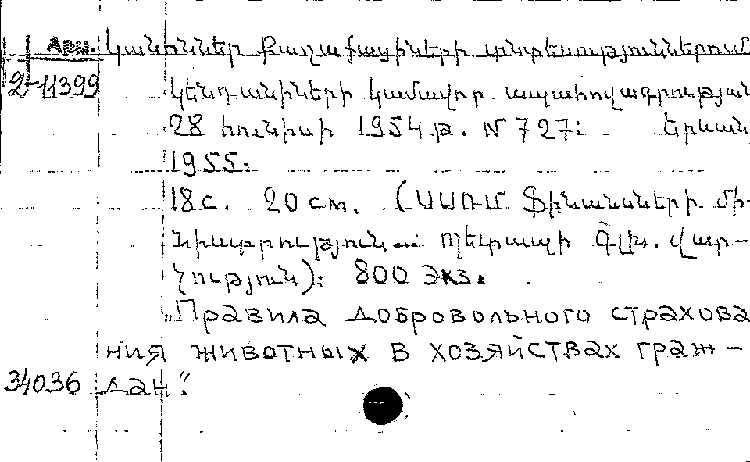 Арм. Կանոններ քաղաքացիների տնտեսություններում
2-11399 կենդանիների կամավոր ապահովագրության
28 հունիսի 1954 թ. N 727: Երևան,
1955:
18 с. 20 см. (ՍՍՌՄ Ֆինանսների մի-
նիստրություն... Պետապի գլխ. վար-
չություն): 800 экз.
„Правила добровольного страхова
ния животных в хозяйствах граж-
34036 дан"